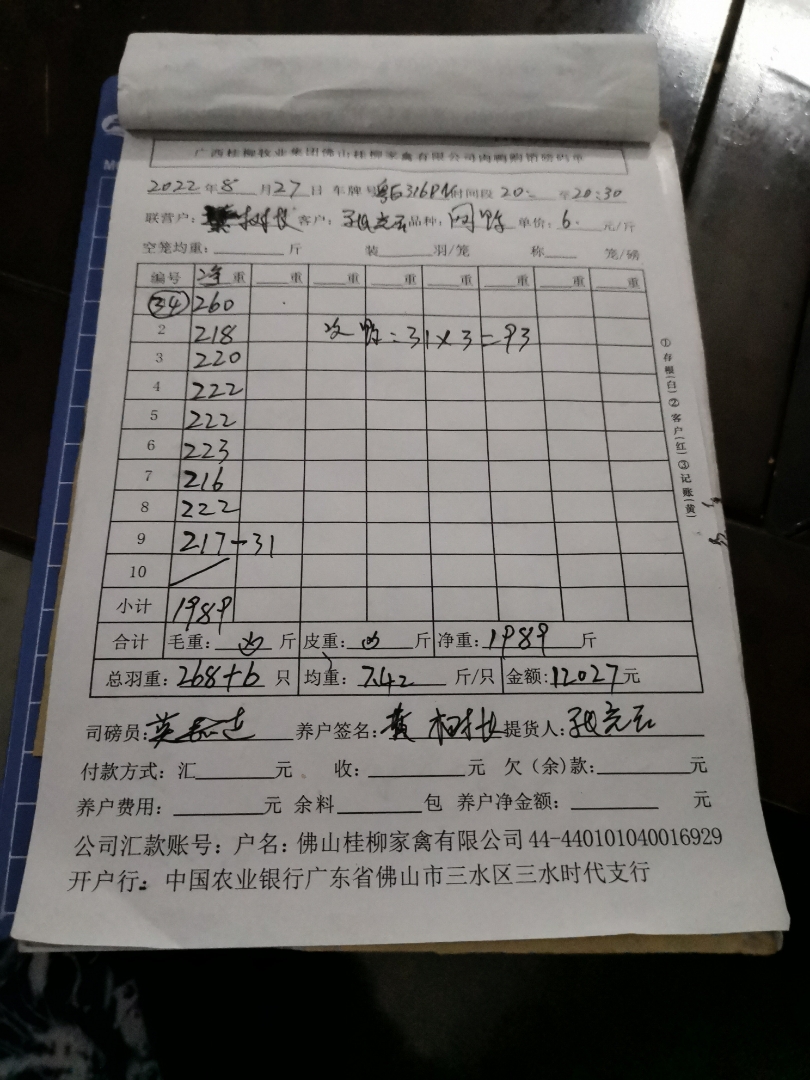 广西桂柳牧业集团佛山桂柳家禽有限公司肉鸭购销磅码单
2022年8月27日 车牌号 时间段20: 至20:30
联营户: 客户: 品种: 单价:6. 元/斤
空笼均重: 斤 装 羽/笼 称 笼/磅
编号 净重 重 重 重 重 重 重 重
34 260
2 218 次鸭:31×3=93
3 220
4 222
5 222
6 223
7 216
8 222
9 217-31
10
小计 1989
合计 毛重: 斤 皮重: 斤 净重:1989 斤
总羽重:268+6 只 均重:7.42 斤/只 金额:12027元
司磅员: 养户签名: 提货人:
付款方式:汇 元 收: 元 欠(余)款: 元
养户费用: 元 余料 包 养户净金额: 元
公司汇款账号:户名:佛山桂柳家禽有限公司 44-440101040016929
开户行:中国农业银行广东省佛山市三水区三水时代支行
①存根(白)②客户(红)③记账(黄)